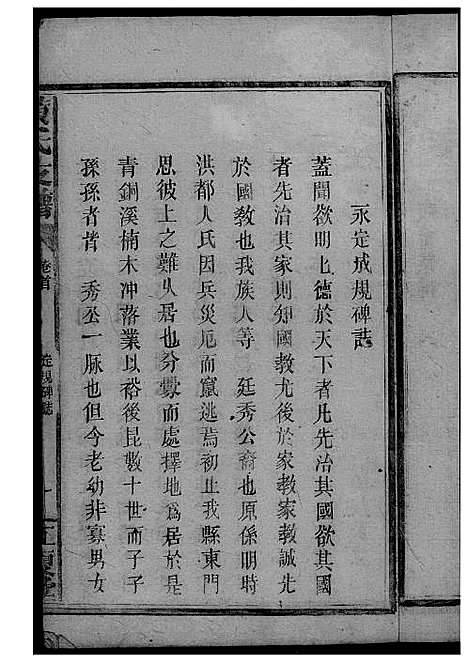 永定成規碑誌
蓋聞欲明上德於天下者凡先治其國欲其國
者先治其家則知國教尤後於家教家教誠先
於國教也我族人等 廷秀公裔也原係明時
洪都人氏因兵災厄而竄逃焉初止我縣東門
思彼上之難以居也分爨而處擇地爲居於是
青銅溪楠木冲落業以裕後昆數十世而子子
孫孫者皆 秀丕一脉也但今老幼非寡男女
氏支譜
卷首
定規碑誌